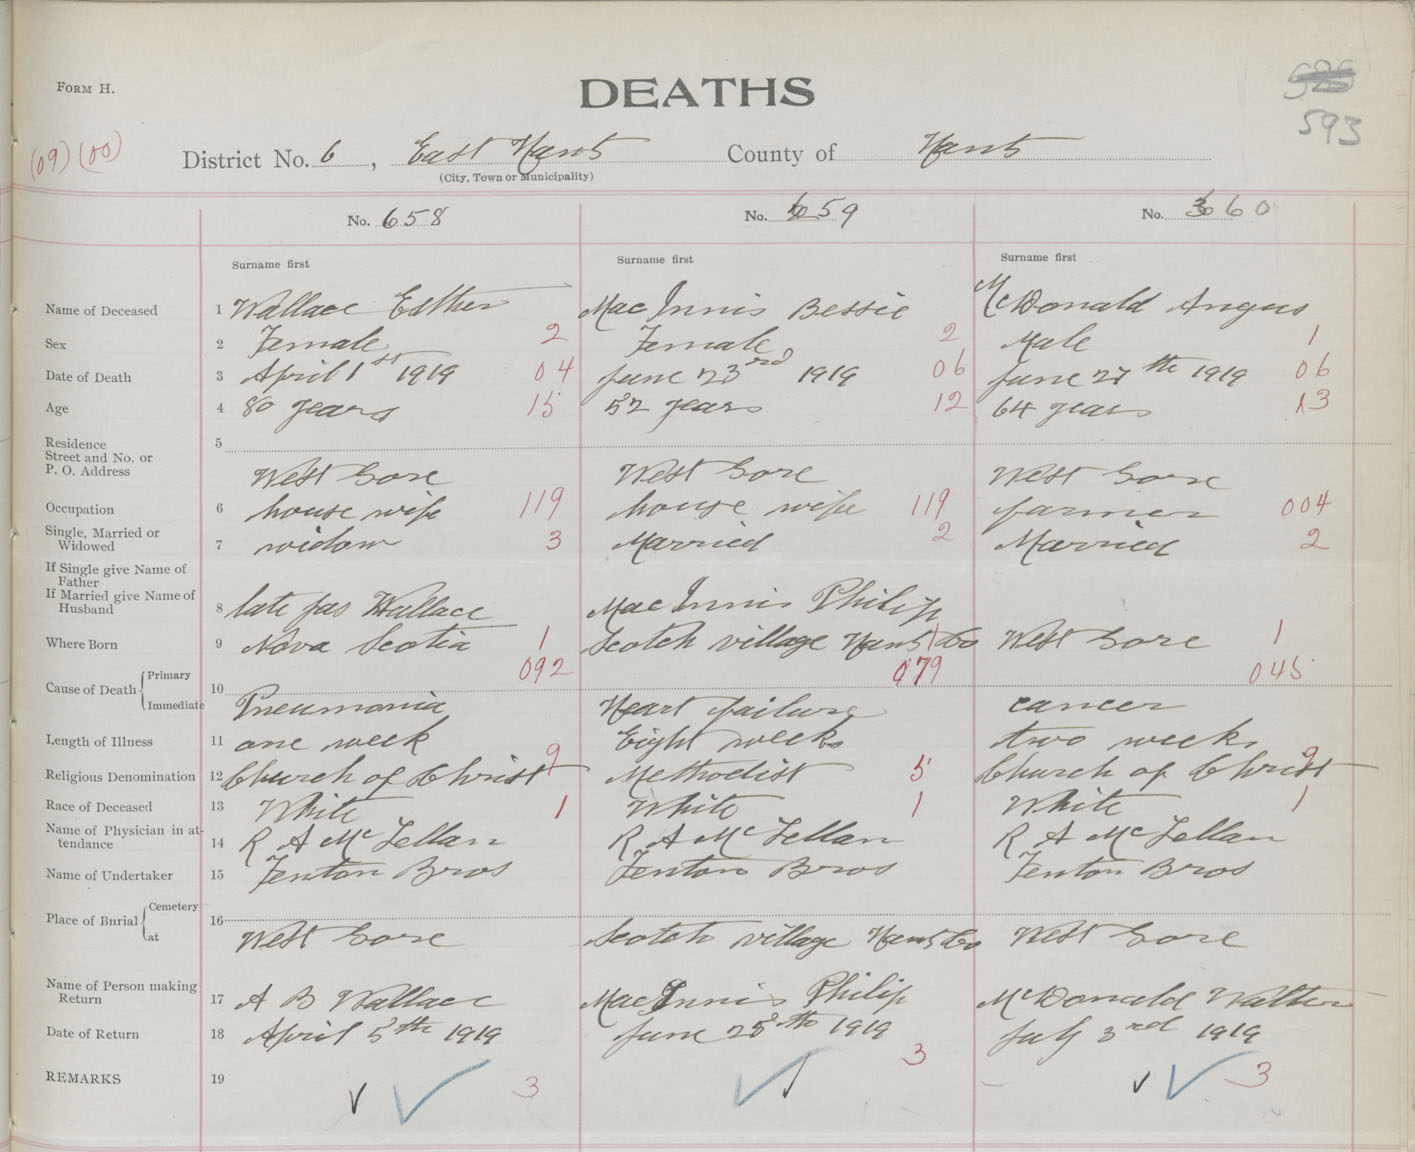 FORM H.
DEATHS
593
(09) (00)
District No. 6, East Hants County of Hants
(City, Town or Municipality)
No. 658 No. 659 No. 660
Surname first Surname first Surname first
Name of Deceased 1 Wallace Esther MacInnis Bessie McDonald Angus
Sex 2 Female 2 Female 2 Male 1
Date of Death 3 April 1st 1919 04 June 23rd 1919 06 June 27th 1919 06
Age 4 80 years 15 52 years 12 64 years 13
Residence 5
Street and No. or
P. O. Address West Gore West Gore West Gore
Occupation 6 house wife 119 house wife 119 farmer 004
Single, Married or
Widowed 7 widow 3 Married 2 Married 2
If Single give Name of
Father
If Married give Name of
Husband 8 late Jas Wallace MacInnis Philip
Where Born 9 Nova Scotia 1 Scotch village Hants Co 1 West Gore 1
092 079 045
Cause of Death Primary 10
Immediate Pneumonia Heart failure cancer
Length of Illness 11 one week Eight weeks two weeks
Religious Denomination 12 Church of Christ 9 Methodist 5 Church of Christ 9
Race of Deceased 13 White 1 White 1 White 1
Name of Physician in at-
tendance 14 R A McLellan R A McLellan R A McLellan
Name of Undertaker 15 Fenton Bros Fenton Bros Fenton Bros
Place of Burial Cemetery 16
at West Gore Scotch village Hants Co West Gore
Name of Person making
Return 17 A B Wallace MacInnis Philip McDonald Walter
Date of Return 18 April 5th 1919 June 28th 1919 July 3rd 1919
REMARKS 19 3 3 3